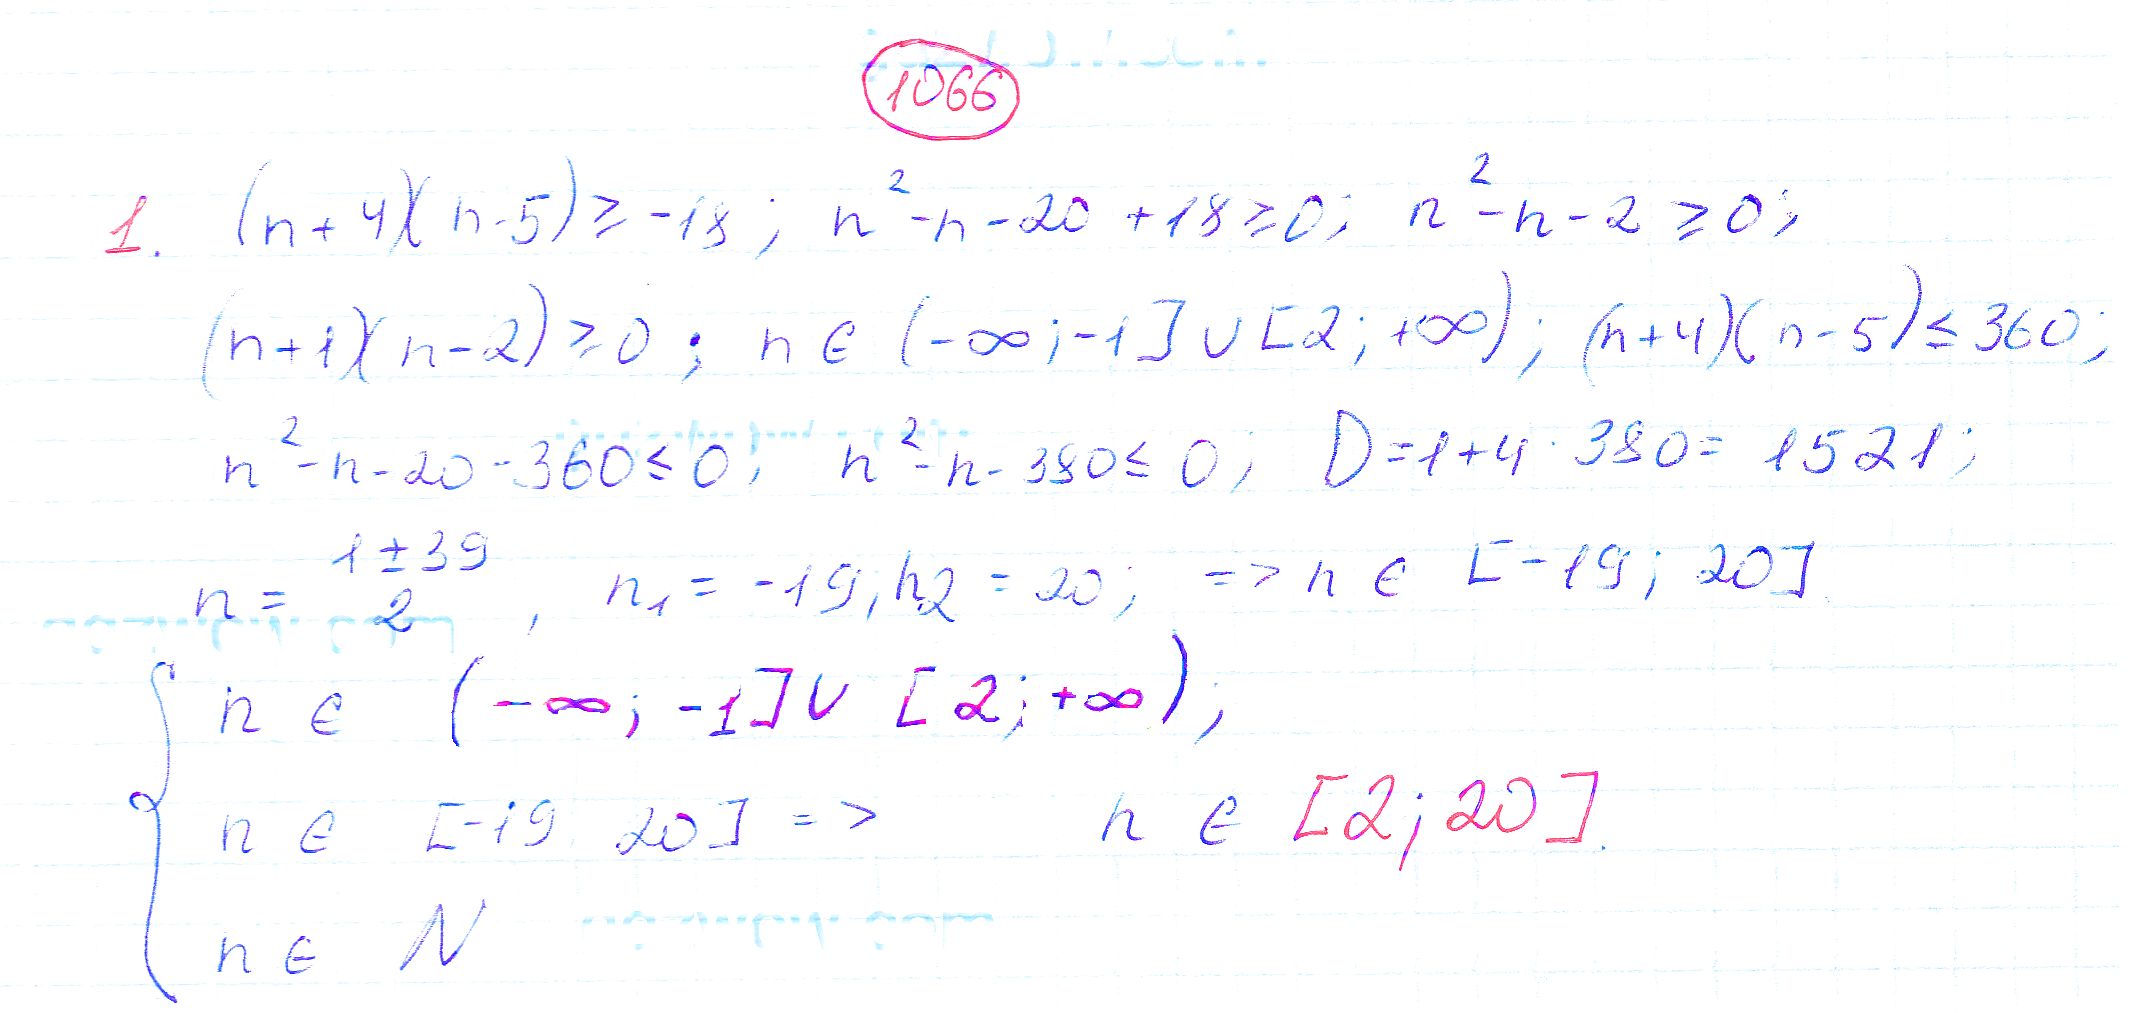 1066
1. (n+4)(n-5)≥-18; n²-n-20+18≥0; n²-n-2≥0;
(n+1)(n-2)≥0; n∈(-∞;-1]∪[2;+∞); (n+4)(n-5)≤360;
n²-n-20-360≤0; n²-n-380≤0; D=1+4·380=1521;
n=(1±39)/2, n₁=-19, n₂=20; => n∈[-19; 20]
{ n∈(-∞; -1]∪[2;+∞);
n∈[-19 20] => n∈[2;20].
n∈N